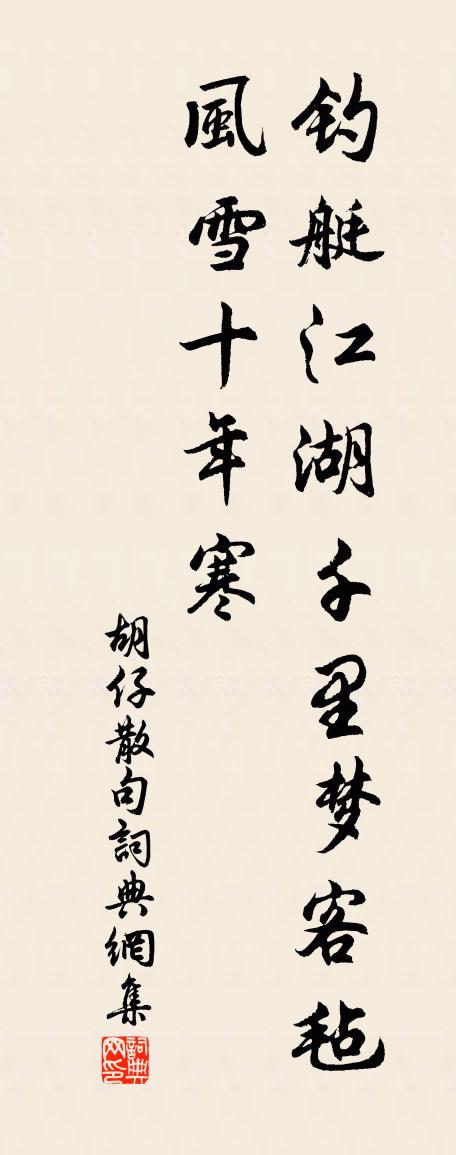 钓艇江湖千里梦客毡
風雪十年寒
胡仔散句詞典網集
詞典网印